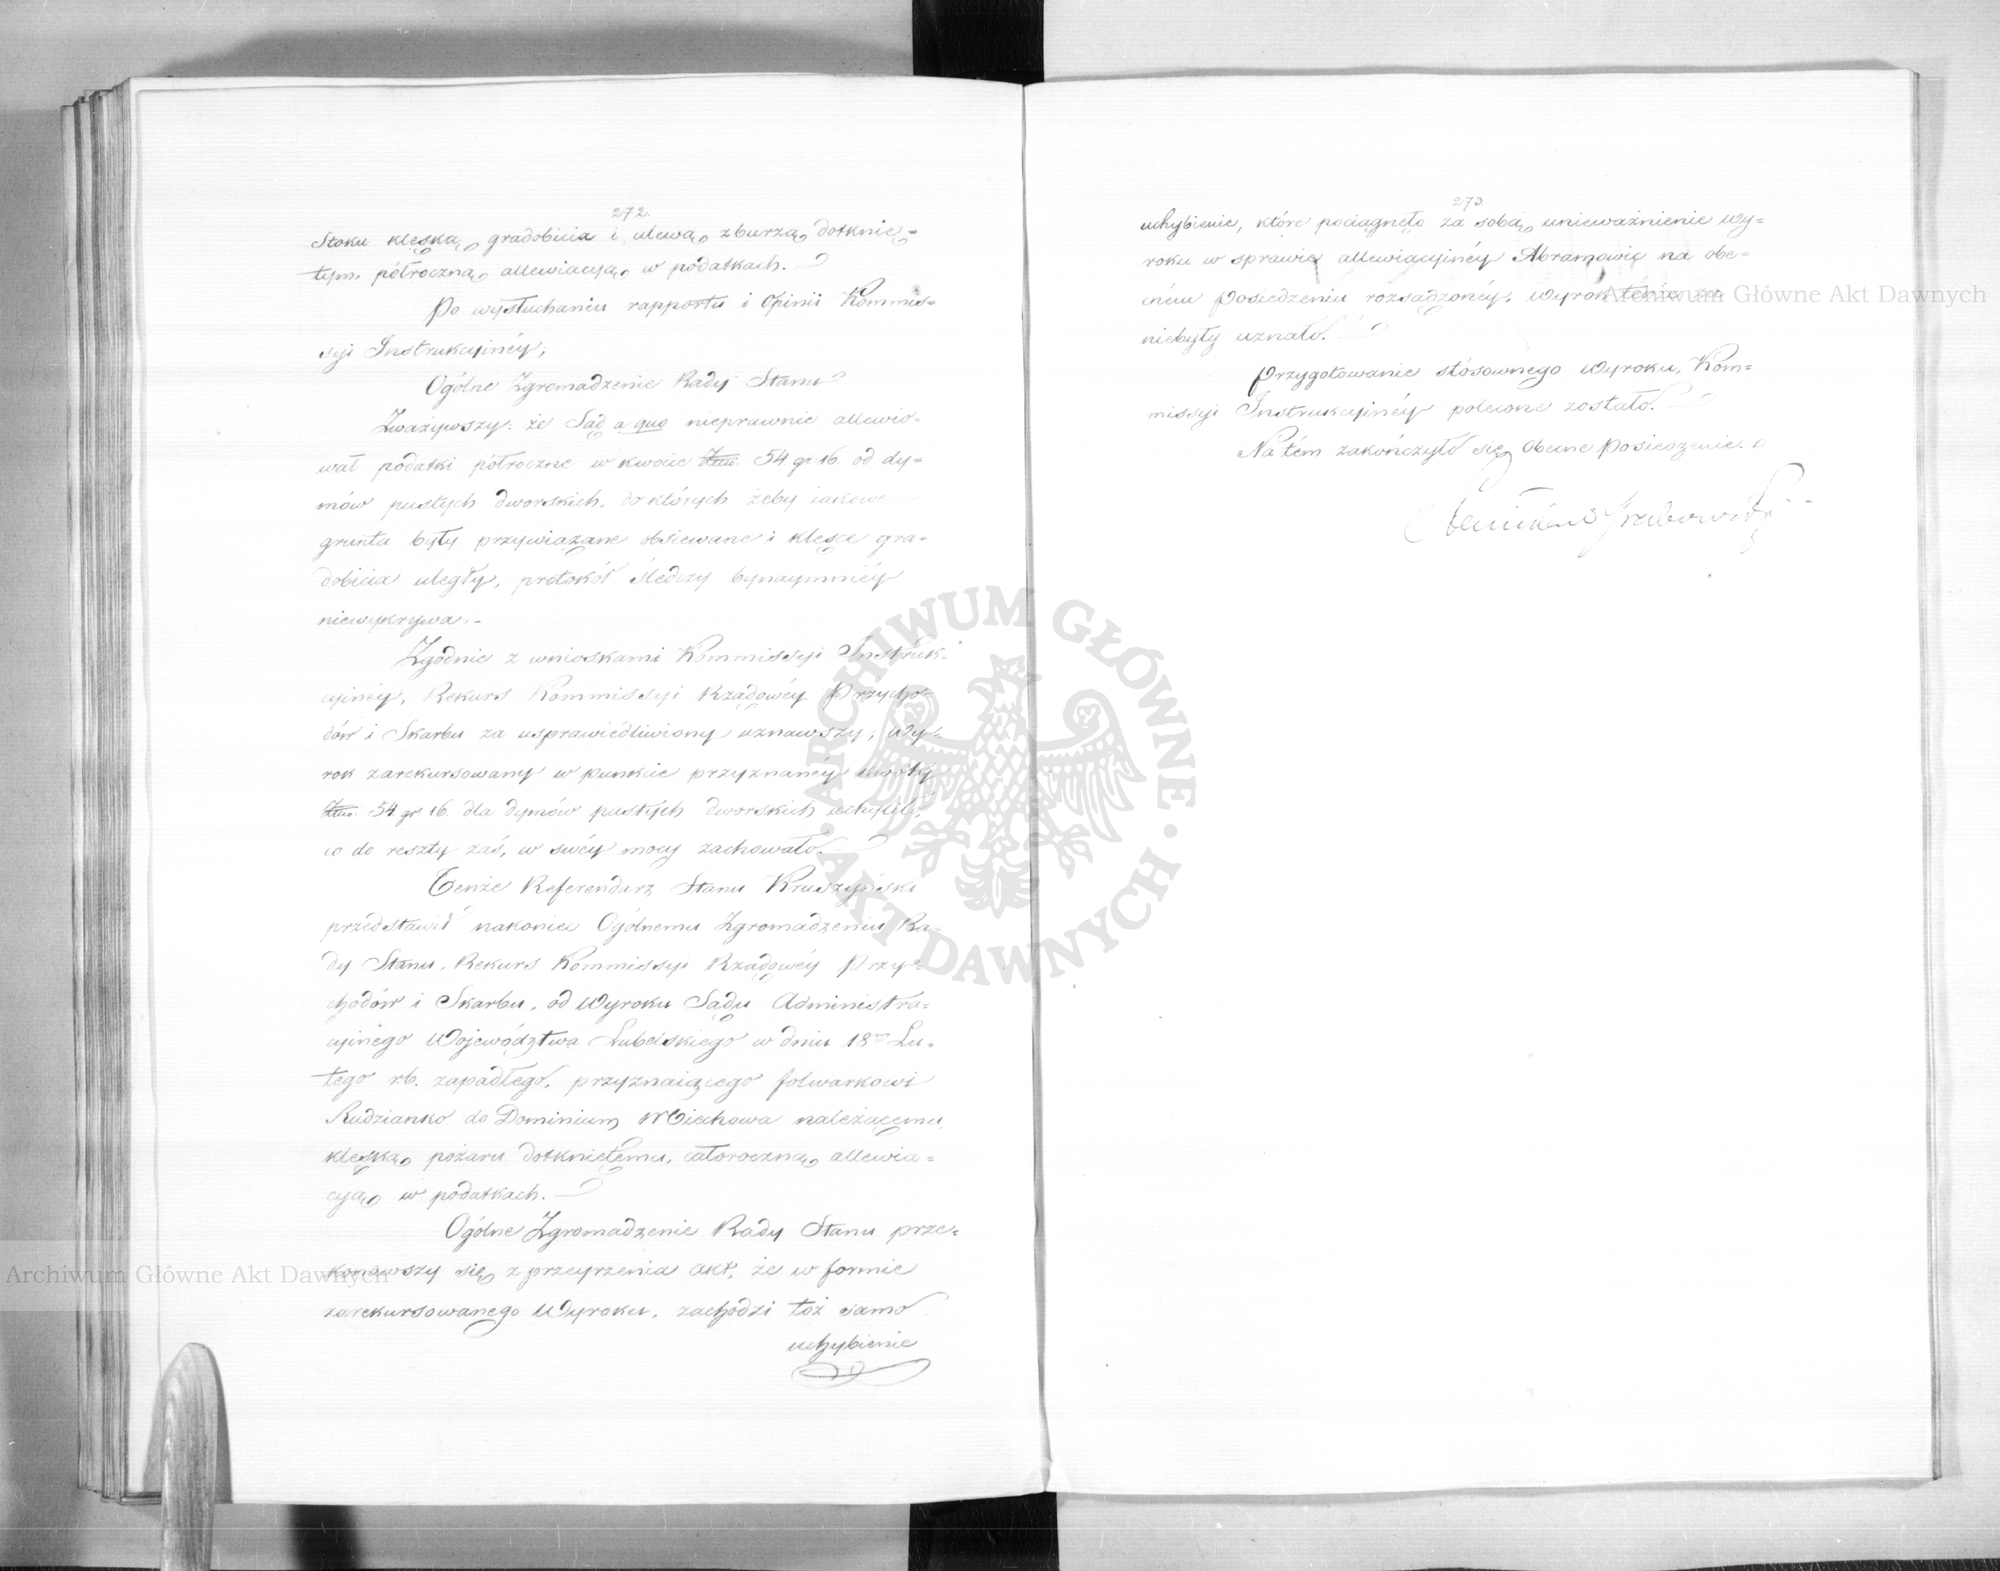 272.
Stoku klęską gradobicia i ulewą z burzą dotknię=
tym, półroczną allewiacyą w podatkach.
Po wysłuchaniu rapportu i Opinii Kommis=
syi Instrukcyinéy,
Ogólne Zgromadzenie Rady Stanu
Zważywszy: że Sąd a quo nieprawnie allewio=
wał podatki półroczne w kwocie 54 gr 16. od dy=
mów pustych dworskich, do których żeby iakowe
grunta były przywiązane obsiewane i klęsce gra=
dobicia uległy, protokół śledczy bynaymniéy
niewykrywa.-
Zgodnie z wnioskami Kommissyi Instruk=
cyinéy, Rekurs Kommissyi Rządowéy Przycho=
dów i Skarbu za usprawiedliwiony uznawszy, Wy=
rok zarekursowany w punkcie przyznanéy kwoty
54 gr. 16. dla dymów pustych dworskich uchyliło,
co do reszty zaś, w swéy mocy zachowało.
Tenże Referendarz Stanu Kruszyński
przedstawił nakoniec Ogólnemu Zgromadzeniu Ra=
dy Stanu, Rekurs Kommissyi Rządowéy Przy=
chodów i Skarbu, od Wyroku Sądu Administra=
cyinego Województwa Lubelskiego w dniu 18m Lu=
tego rb. zapadłego, przyznaiącego folwarkowi
Rudzianko do Dominium Miechowa należącemu,
klęską pożaru dotkniętemu, całoroczną allewia=
cyą w podatkach.
Ogólne Zgromadzenie Rady Stanu prze=
konawszy się z przeyrzenia akt, że w formie
zarekursowanego Wyroku, zachodzi toż samo
uchybienie
273.
uchybienie, które pociągnęło za sobą unieważnienie Wy=
roku w sprawie allewiacyinéy Abramowic na obe=
cném Posiedzeniu rozsądzonéy, Wyrok tenże za
niebyły uznało.
Przygotowanie stósownego Wyroku, Kom=
missyi Instrukcyinéy polecone zostało.
Na tém zakończyło się Obecne Posiedzenie.
Stanisław Grabowski
Archiwum Główne Akt Dawnych
Archiwum Główne Akt Dawnych
ARCHIWUM GŁÓWNE
AKT DAWNYCH